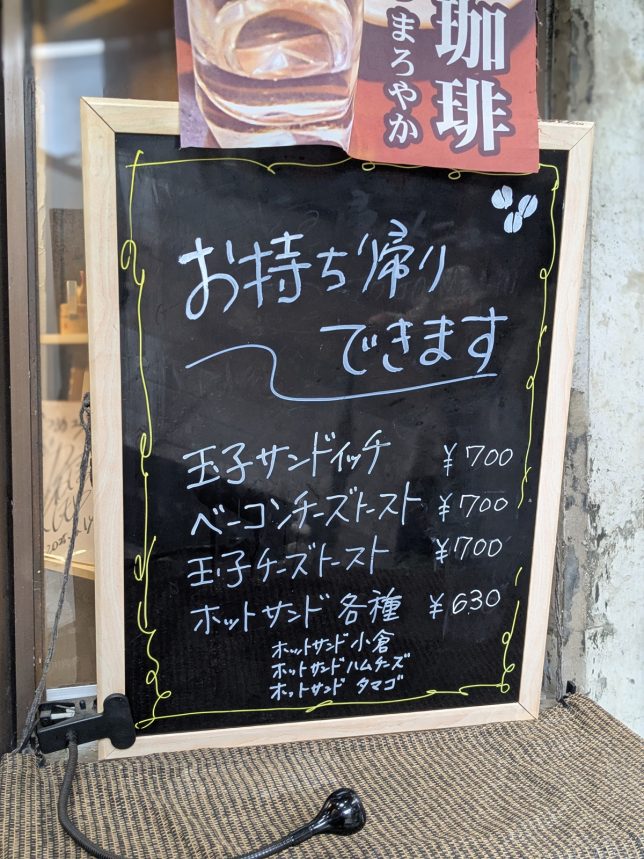 珈琲
まろやか
お持ち帰り
できます
玉子サンドイッチ ¥700
ベーコンチーズトースト ¥700
玉子チーズトースト ¥700
ホットサンド各種 ¥630
ホットサンド小倉
ホットサンドハムチーズ
ホットサンド タマゴ